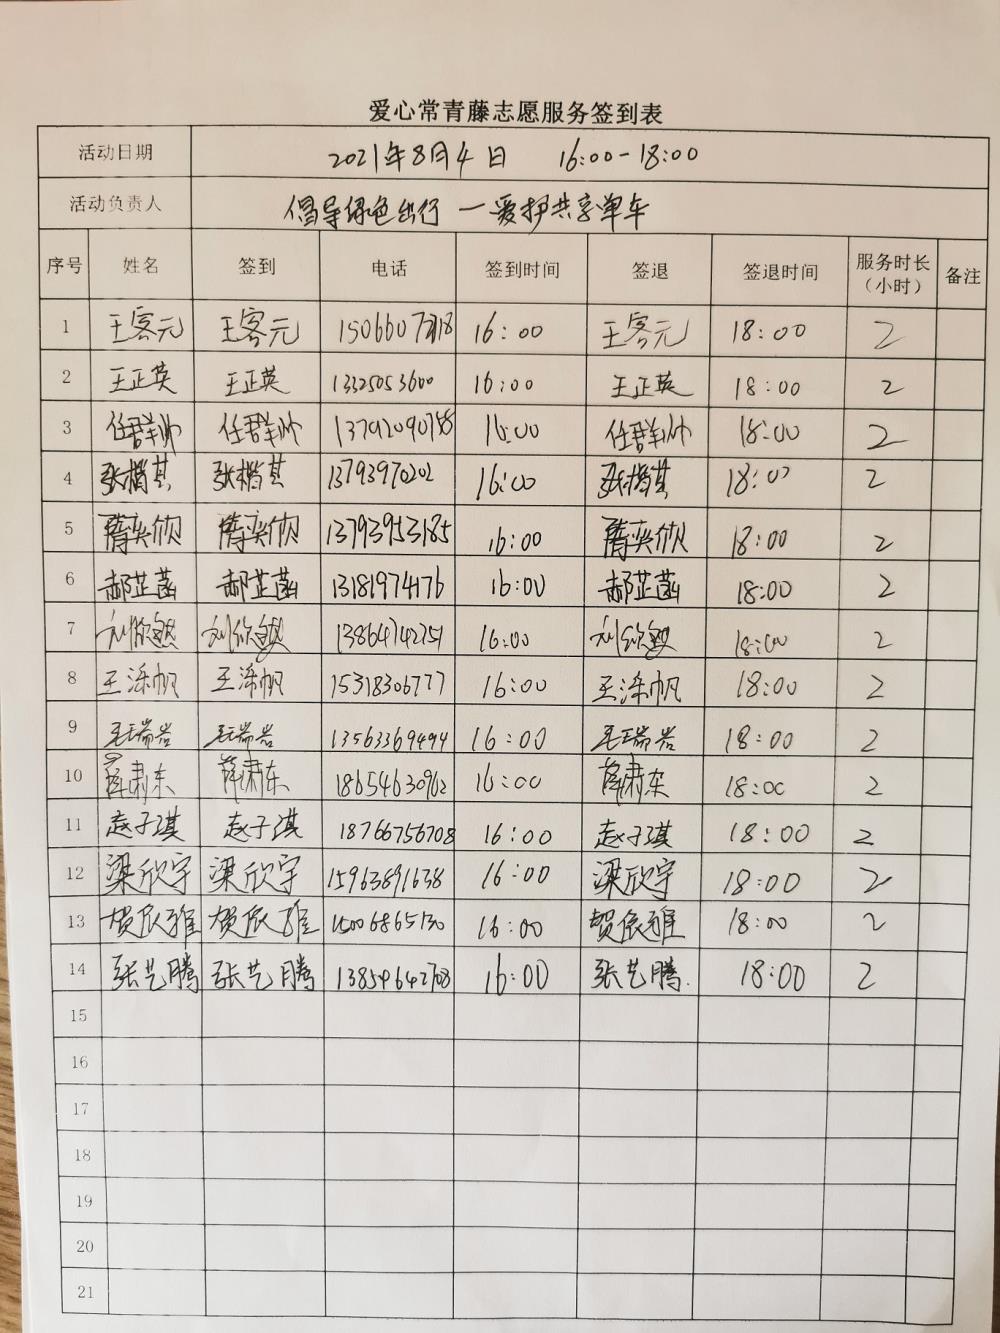 爱心常青藤志愿服务签到表
活动日期 2021年8月4日 16:00-18:00
活动负责人 倡导绿色出行 一爱护共享单车
序号 姓名 签到 电话 签到时间 签退 签退时间 服务时长（小时） 备注
1 王客元 王客元 16:00 王客元 18:00 2
2 王正英 王正英 13325053600 16:00 王正英 18:00 2
3 任群帅 任群帅 16:00 任群帅 18:00 2
4 张楷其 张楷其 13793970202 16:00 张楷其 18:00 2
5 隋奕欣 隋奕欣 13793953185 16:00 隋奕欣 18:00 2
6 郝芷菡 郝芷菡 13181974176 16:00 郝芷菡 18:00 2
7 13864742751 16:00 18:00 2
8 王涤帆 王涤帆 15318306777 16:00 王涤帆 18:00 2
9 毛瑞岩 毛瑞岩 13563369494 16:00 毛瑞岩 18:00 2
10 薛肃东 薛肃东 18654630962 16:00 薛肃东 18:00 2
11 赵子琪 赵子琪 18766756708 16:00 赵子琪 18:00 2
12 梁欣宇 梁欣宇 15963891638 16:00 梁欣宇 18:00 2
13 贺依雅 贺依雅 15006865130 16:00 贺依雅 18:00 2
14 张艺腾 张艺腾 13854642708 16:00 张艺腾 18:00 2
15
16
17
18
19
20
21